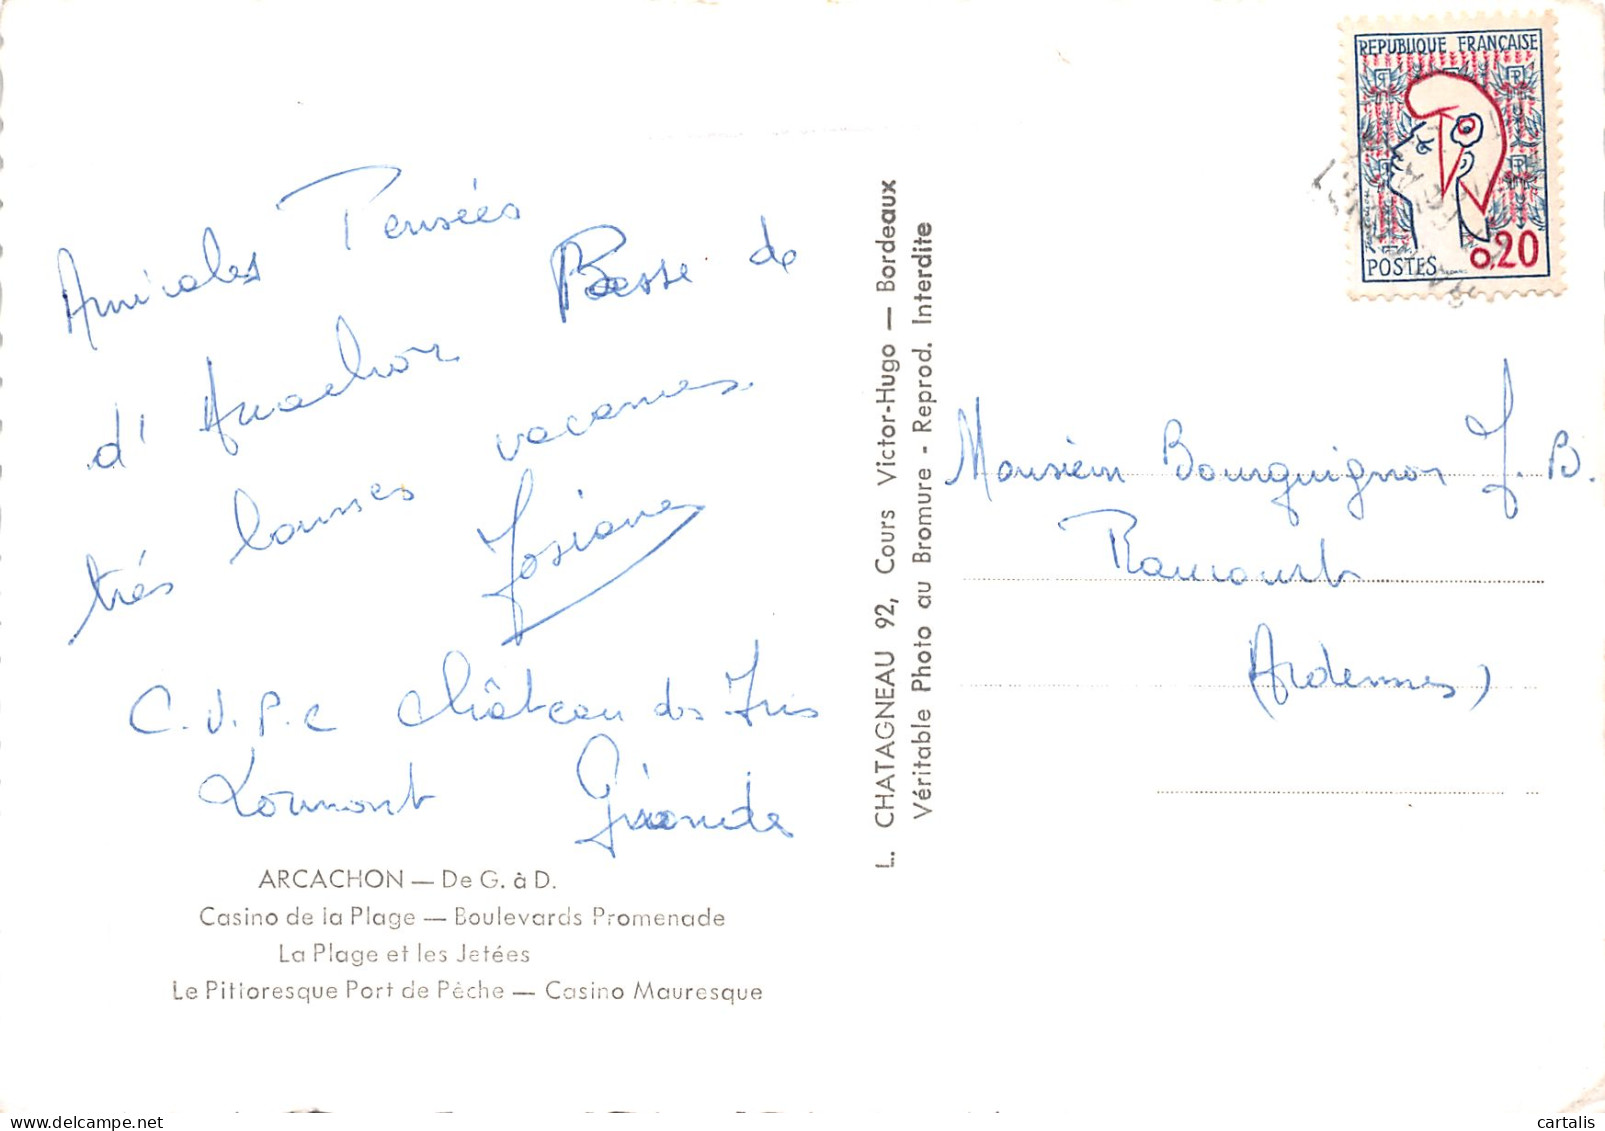 Amicales Pensées
d'Arcachon Passe de
très bonnes vacances.
Josiane
C.V.P.C Château des Iris
Lormont Gironde
ARCACHON — De G. à D.
Casino de la Plage — Boulevards Promenade
La Plage et les Jetées
Le Pittoresque Port de Pêche — Casino Mauresque
L. CHATAGNEAU 92, Cours Victor-Hugo — Bordeaux
Véritable Photo au Bromure - Reprod. Interdite
REPUBLIQUE FRANÇAISE
0,20
POSTES
Monsieur Bourguignon J. B.
Raucourt
(Ardennes)
cartalis